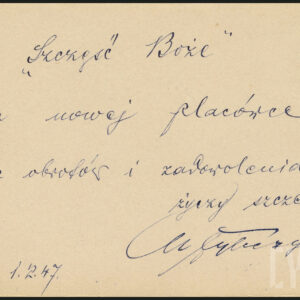 "Szczęść Boże"
nowej placówce
obrotów i zadowolenia
życzy szcze
1.2.47.